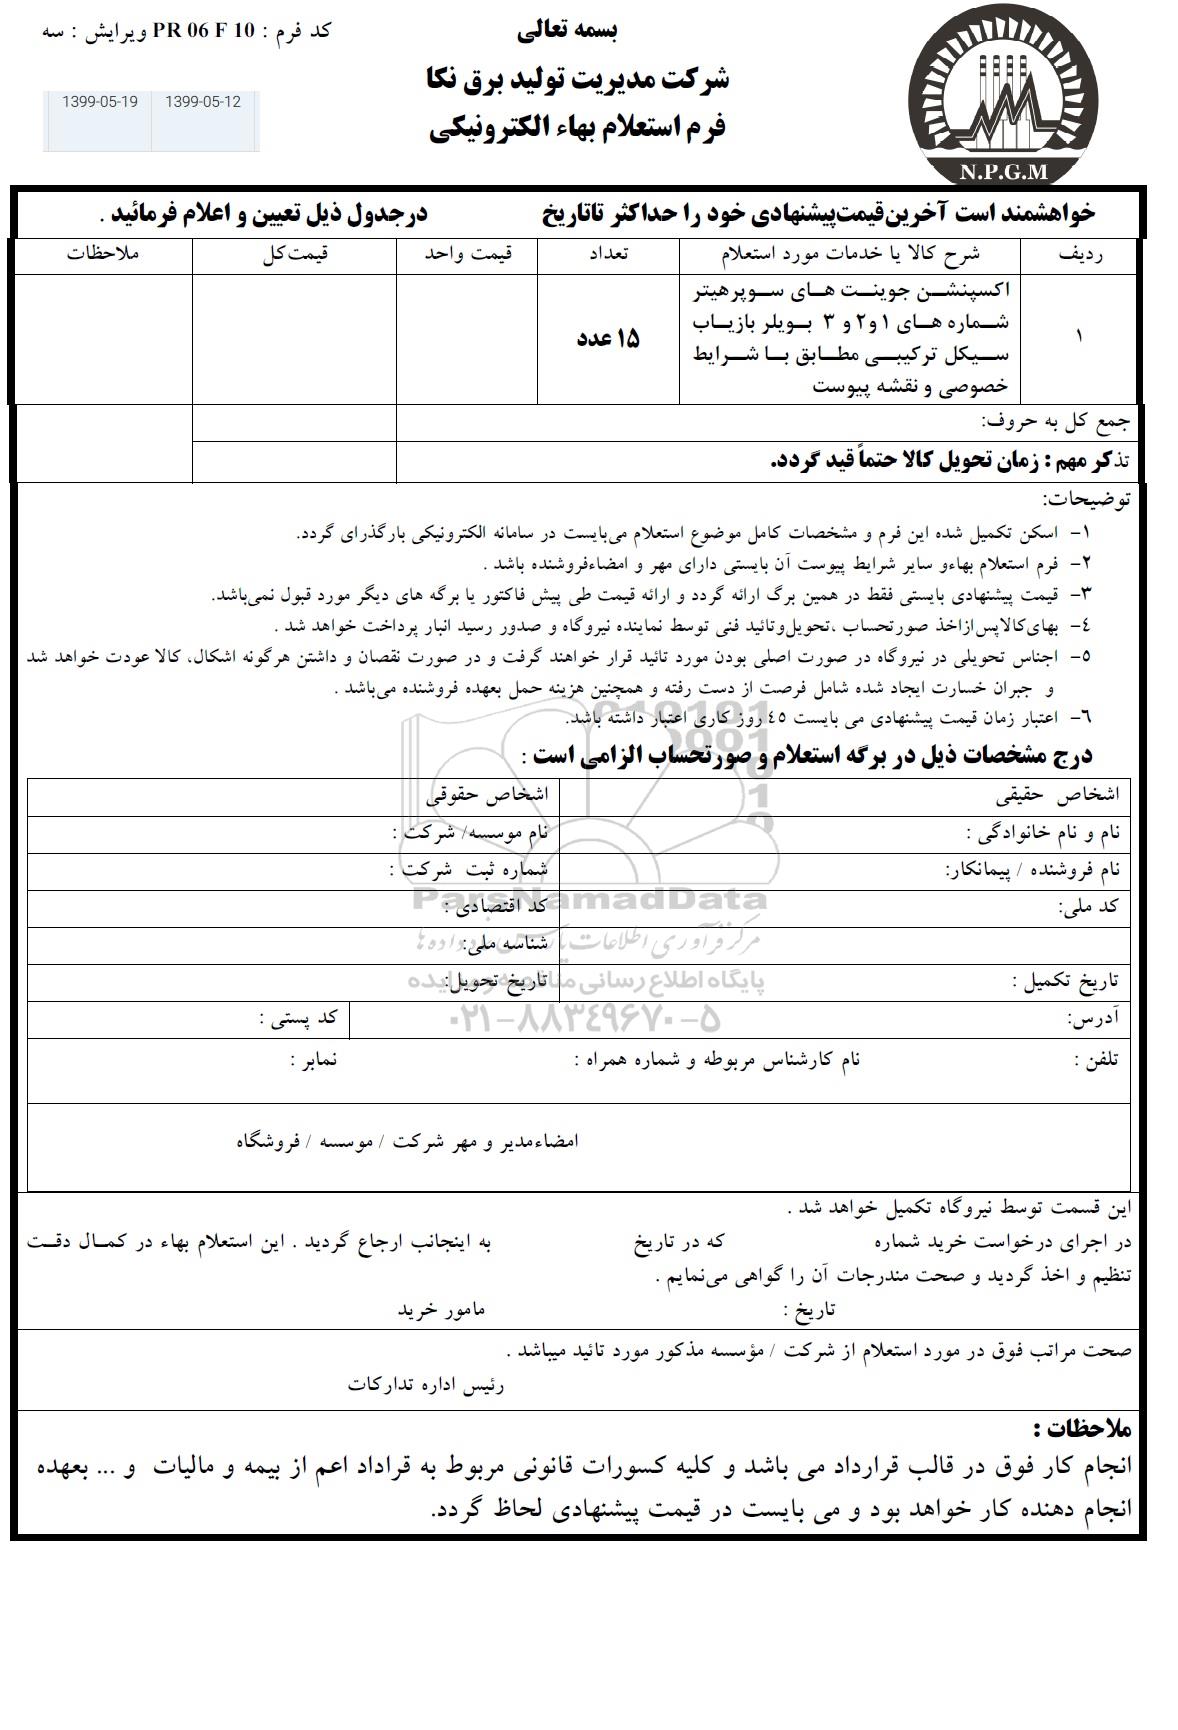 بسمه تعالی
کد فرم : PR 06 F 10 ویرایش : سه
شرکت مدیریت تولید برق نکا
فرم استعلام بهاء الکترونیکی
1399-05-19 1399-05-12
N.P.G.M
خواهشمند است آخرین‌قیمت‌پیشنهادی خود را حداکثر تاتاریخ درجدول ذیل تعیین و اعلام فرمائید .
ردیف شرح کالا یا خدمات مورد استعلام تعداد قیمت واحد قیمت‌کل ملاحظات
اکسپنشن جوینت های سوپرهیتر
شماره های ۱ و۲ و ۳ بویلر بازیاب
۱ ۱۵ عدد
سیکل ترکیبی مطابق با شرایط
خصوصی و نقشه پیوست
جمع کل به حروف:
تذکر مهم : زمان تحویل کالا حتماً قید گردد.
توضیحات:
۱- اسکن تکمیل شده این فرم و مشخصات کامل موضوع استعلام می‌بایست در سامانه الکترونیکی بارگذرای گردد.
۲- فرم استعلام بهاءو سایر شرایط پیوست آن بایستی دارای مهر و امضاءفروشنده باشد .
۳- قیمت پیشنهادی بایستی فقط در همین برگ ارائه گردد و ارائه قیمت طی پیش فاکتور یا برگه های دیگر مورد قبول نمی‌باشد.
۴- بهای‌کالاپس‌ازاخذ صورتحساب ،تحویل‌وتائید فنی توسط نماینده نیروگاه و صدور رسید انبار پرداخت خواهد شد .
۵- اجناس تحویلی در نیروگاه در صورت اصلی بودن مورد تائید قرار خواهند گرفت و در صورت نقصان و داشتن هرگونه اشکال، کالا عودت خواهد شد
و جبران خسارت ایجاد شده شامل فرصت از دست رفته و همچنین هزینه حمل بعهده فروشنده می‌باشد .
۶- اعتبار زمان قیمت پیشنهادی می بایست ۴۵ روز کاری اعتبار داشته باشد.
درج مشخصات ذیل در برگه استعلام و صورتحساب الزامی است :
اشخاص حقیقی اشخاص حقوقی
نام و نام خانوادگی : نام موسسه/ شرکت :
نام فروشنده / پیمانکار: شماره ثبت شرکت :
ParsNamadData
کد ملی: کد اقتصادی :
شناسه ملی:
تاریخ تکمیل : تاریخ تحویل:
۰۲۱-۸۸۳۴۹۶۷۰-۵
آدرس: کد پستی :
تلفن : نام کارشناس مربوطه و شماره همراه : نمابر :
امضاءمدیر و مهر شرکت / موسسه / فروشگاه
این قسمت توسط نیروگاه تکمیل خواهد شد .
در اجرای درخواست خرید شماره که در تاریخ به اینجانب ارجاع گردید . این استعلام بهاء در کمال دقت
تنظیم و اخذ گردید و صحت مندرجات آن را گواهی می‌نمایم .
تاریخ : مامور خرید
صحت مراتب فوق در مورد استعلام از شرکت / مؤسسه مذکور مورد تائید میباشد .
رئیس اداره تدارکات
ملاحظات :
انجام کار فوق در قالب قرارداد می باشد و کلیه کسورات قانونی مربوط به قراداد اعم از بیمه و مالیات و ... بعهده
انجام دهنده کار خواهد بود و می بایست در قیمت پیشنهادی لحاظ گردد.